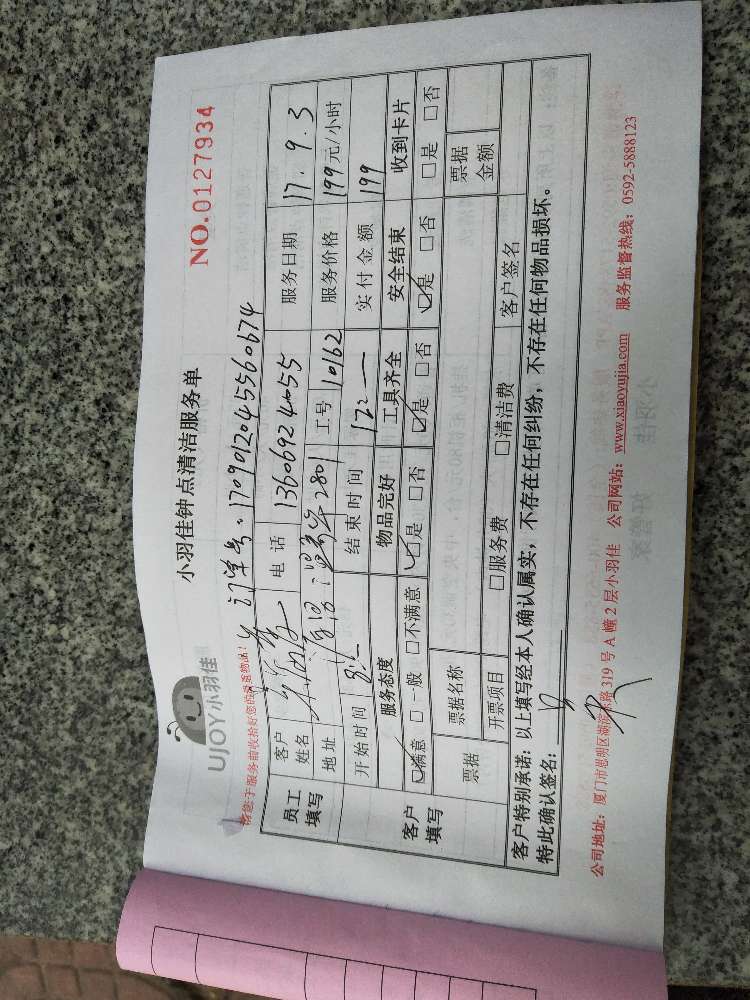 UJOY小羽佳
小羽佳钟点清洁服务单
NO.0127934
请您于服务前收拾好您的贵重物品!
订单号:1709012045560674
员工填写
客户姓名
电话 13606924055
服务日期 17.9.3
地址 2801
工号 10162
服务价格 199元/小时
开始时间 8:
结束时间 12:
实付金额 199
客户填写
服务态度 物品完好 工具齐全 安全结束 收到卡片
☑满意 □一般 □不满意 ☑是 □否 ☑是 □否 ☑是 □否 □是 □否
票据 票据名称 票据金额
开票项目 □服务费 □清洁费 客户签名
客户特别承诺:以上填写经本人确认属实,不存在任何纠纷,不存在任何物品损坏。
特此确认签名:
公司地址:厦门市思明区湖滨东路319号A幢2层小羽佳 公司网站:www.xiaoyujia.com 服务监督热线:0592-5888123